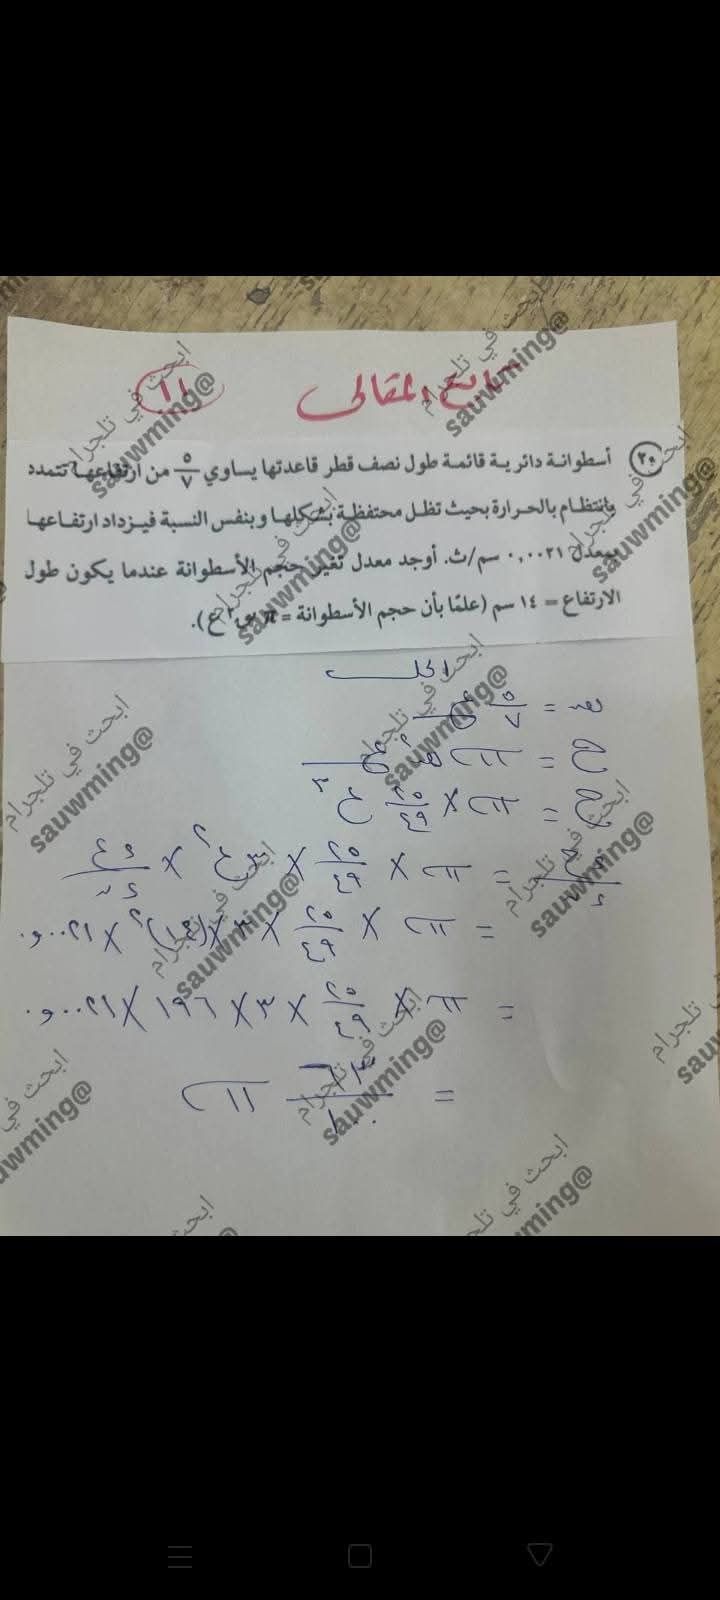 تابع المقالى ١١
٢٠ أسطوانة دائرية قائمة طول نصف قطر قاعدتها يساوي ٥/٧ من ارتفاعها تتمدد
بانتظام بالحرارة بحيث تظل محتفظة بشكلها وبنفس النسبة فيزداد ارتفاعها
بمعدل ٠,٠٠٢١ سم/ث. أوجد معدل تغير حجم الأسطوانة عندما يكون طول
الارتفاع = ١٤ سم (علمًا بأن حجم الأسطوانة = π نق٢ ع).
الحل
نق = ٥/٧ ع
ح = π نق٢ ع
ح = π × ٢٥/٤٩ ع٣
ءح/ءن = π × ٢٥/٤٩ × ٣ ع٢ × ءع/ءن
= π × ٢٥/٤٩ × ٣ × (١٤)٢ × ٠,٠٠٢١
= π × ٢٥/٤٩ × ٣ × ١٩٦ × ٠,٠٠٢١
= ٦٣/١٠٠ π
ابحث في تلجرام
@sauwming